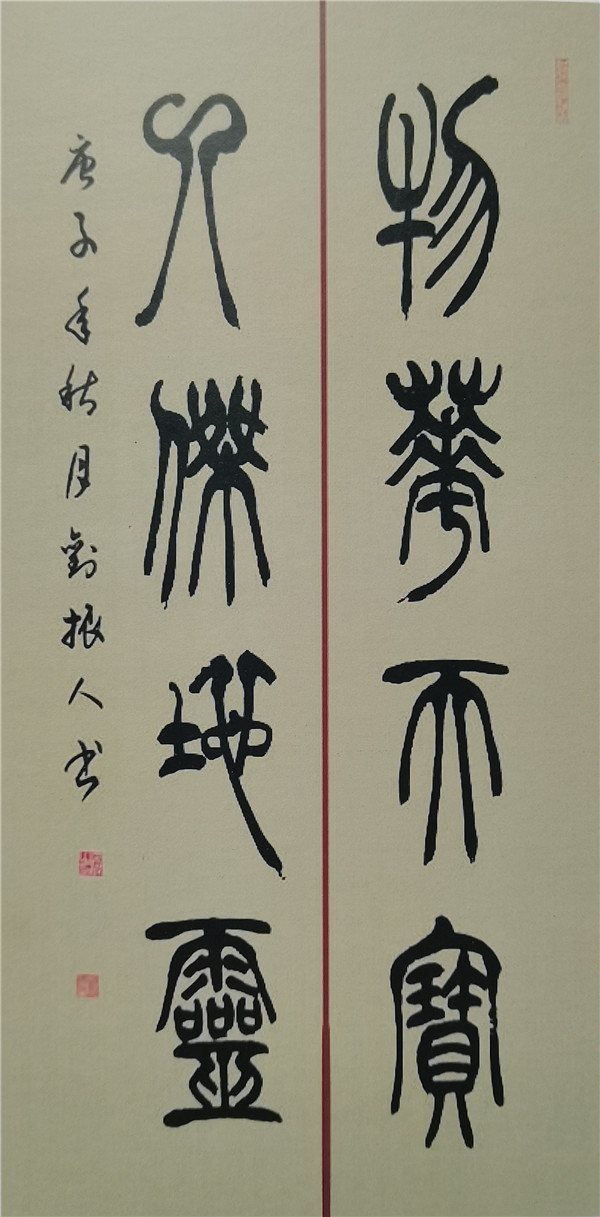 物華天寶
人傑地靈
庚子年秋月劉振人书